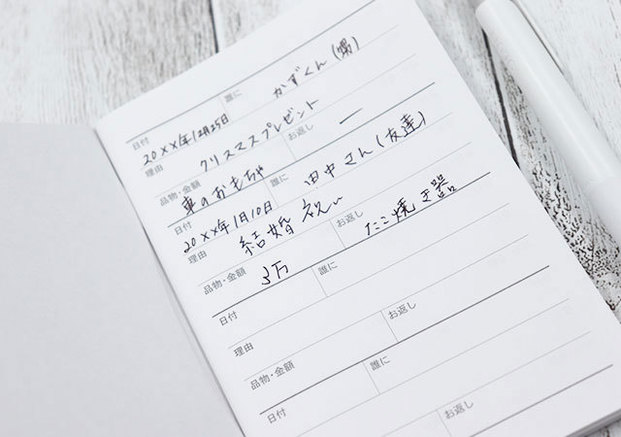 日付 誰に
20××年12月25日 かずくん(甥)
理由
クリスマスプレゼント
品物・金額 お返し
車のおもちゃ ー
日付 誰に
20××年1月10日 田中さん(友達)
理由
結婚祝い
品物・金額 お返し
3万 たこ焼き器
日付 誰に
理由
品物・金額 お返し
日付 誰に
お返し